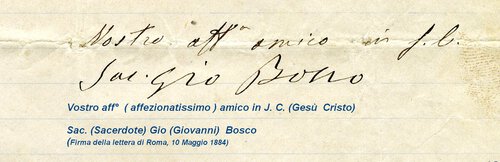 Vostro aff° amico in J. C.
Sac. Gio Bosco
Vostro aff° ( affezionatissimo ) amico in J. C. (Gesù Cristo)
Sac. (Sacerdote) Gio (Giovanni) Bosco
(Firma della lettera di Roma, 10 Maggio 1884)